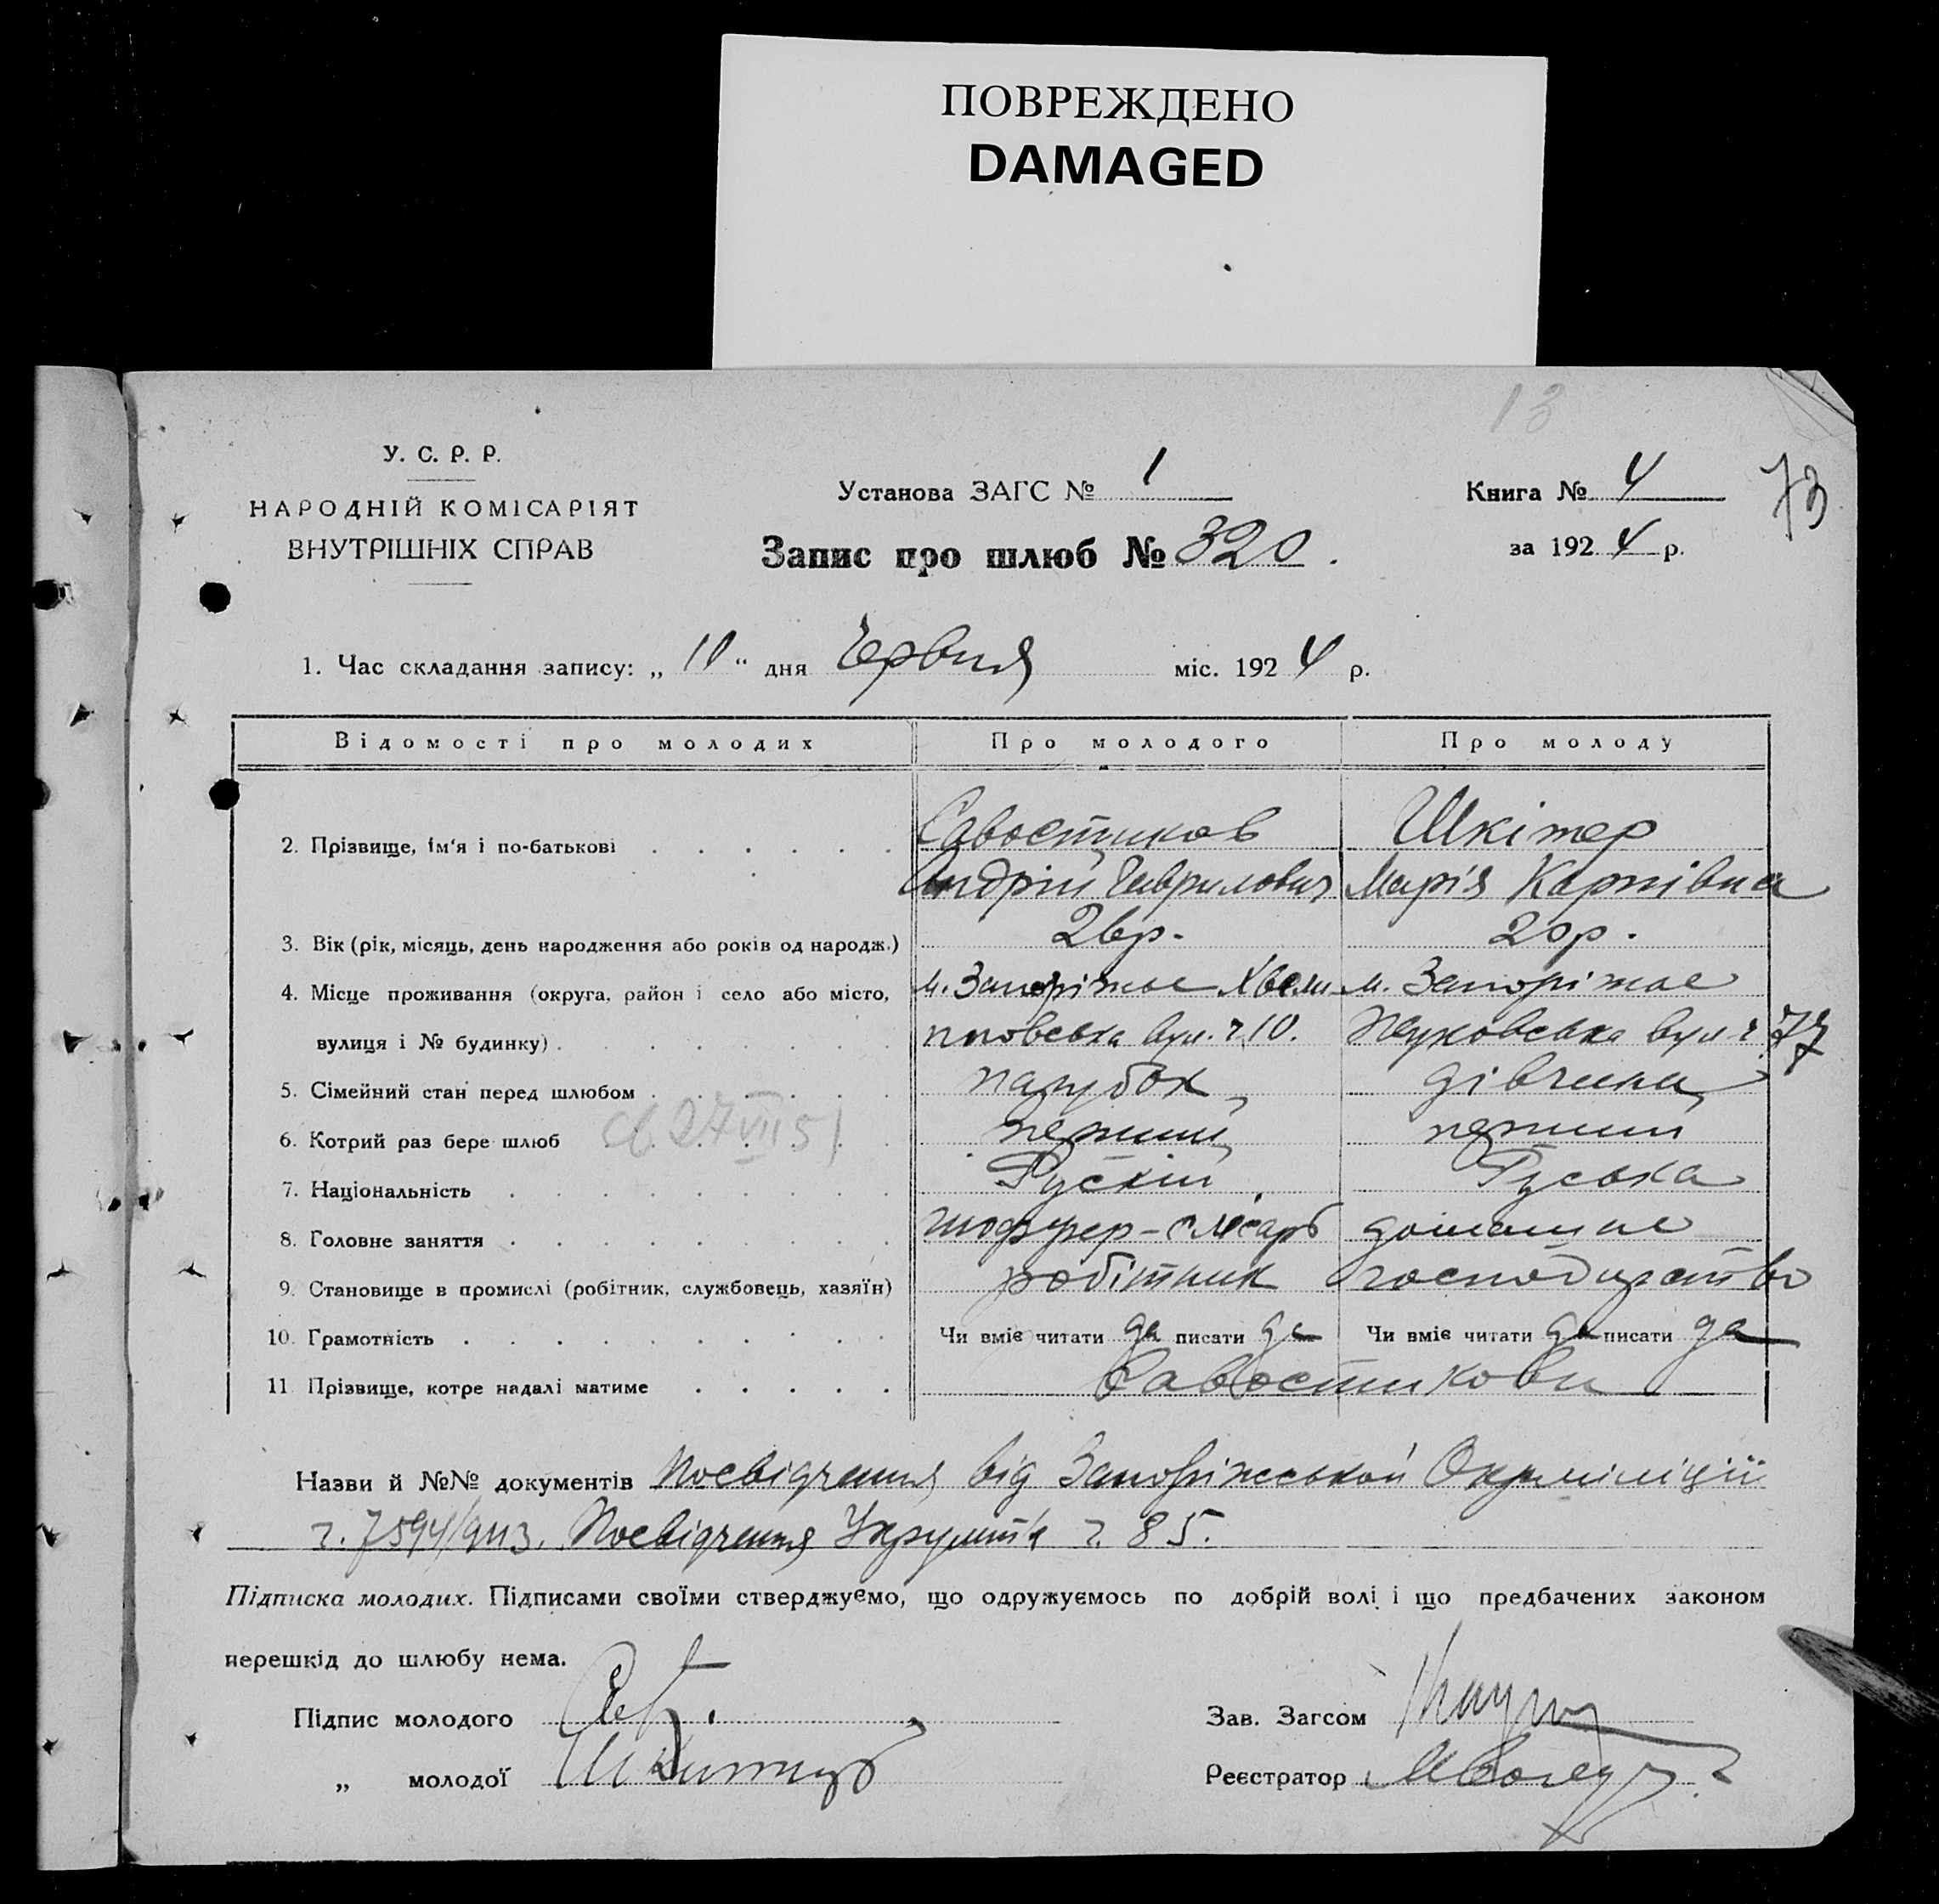 ПОВРЕЖДЕНО
DAMAGED
13
73
У. С. Р. Р.
НАРОДНІЙ КОМІСАРІЯТ
ВНУТРІШНІХ СПРАВ
Установа ЗАГС № 1
Книга № 4
Запис про шлюб № 320.
за 1924 р.
1. Час складання запису: „ 10 “ дня Червня міс. 1924 р.
Відомості про молодих Про молодого Про молоду
2. Прізвище, ім'я і по-батькові Савостиков Шкітер
Андрій Гаврилович Марія Карпівна
3. Вік (рік, місяць, день народження або років од народж.) 26р. 20р.
4. Місце проживання (округа, район і село або місто, м. Запоріжже м. Запоріжже
вулиця і № будинку) вул. ч. 10. Жуковська вул. ч. 77
5. Сімейний стан перед шлюбом парубок дівчина
6. Котрий раз бере шлюб перший перший
27 VII 51
7. Національність Руский Руська
8. Головне заняття шофер-слюсарь домашнє
9. Становище в промислі (робітник, службовець, хазяїн) робітник господарство
10. Грамотність Чи вміє читати да писати да Чи вміє читати да писати да
11. Прізвище, котре надалі матиме Савостикови
Назви й №№ документів Посвідчення від Запоріжської Окрміліції
ч. 7594/9113. Посвідчення ч. 85.
Підписка молодих. Підписами своїми стверджуємо, що одружуємось по добрій волі і що предбачених законом
перешкід до шлюбу нема.
Підпис молодого
Зав. Загсом
„ молодої
Реєстратор